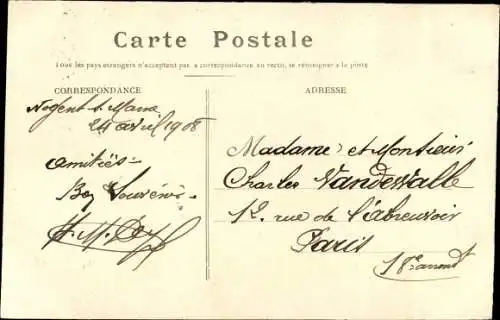 Carte Postale
Tous les pays étrangers n'acceptent pas la correspondance au recto, se renseigner à la poste
CORRESPONDANCE
ADRESSE
Nogent s. Marne
24 avril 1908
Amitiés
Bon Souvenir
Madame et Monsieur
Charles Vandewalle
12. rue de l'Abreuvoir
Paris
18e arront